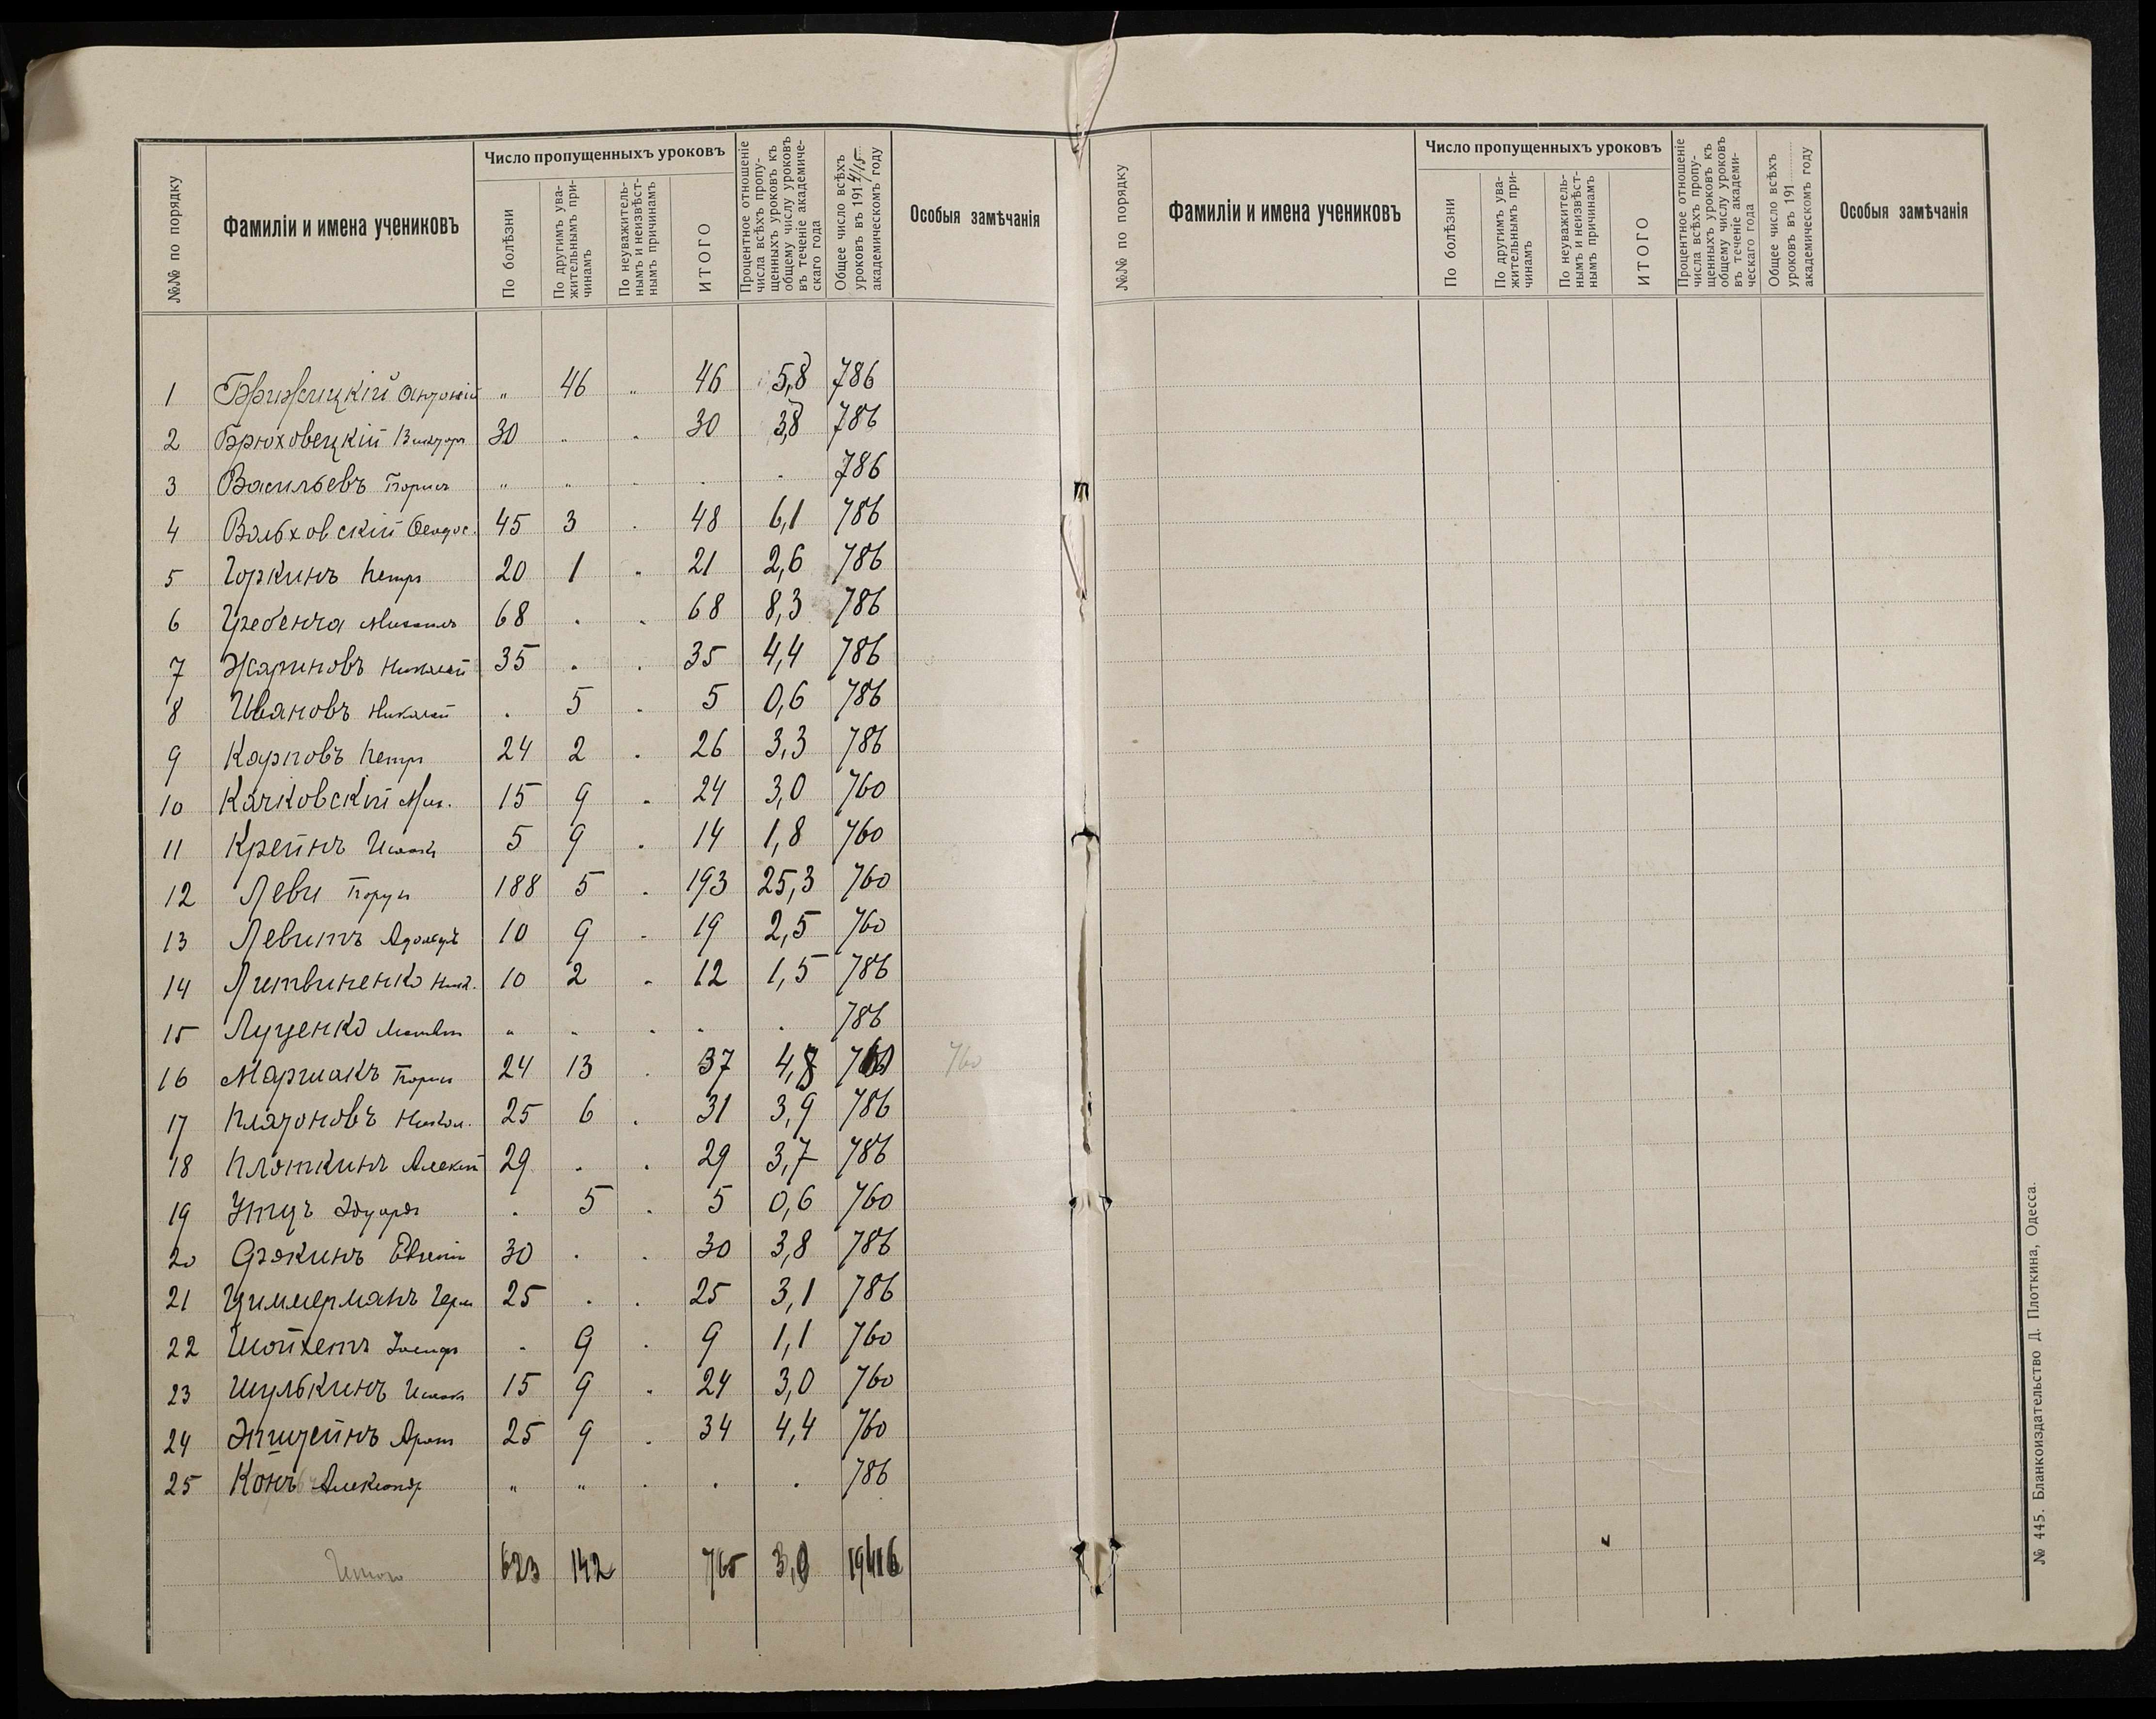 №№ по порядку
Фамиліи и имена учениковъ
Число пропущенныхъ уроковъ
По болѣзни
По другимъ ува-
жительнымъ при-
чинамъ
По неуважитель-
нымъ и неизвѣст-
нымъ причинамъ
ИТОГО
Процентное отношеніе
числа всѣхъ пропу-
щенныхъ уроковъ къ
общему числу уроковъ
въ теченіе академиче-
скаго года
Общее число всѣхъ
уроковъ въ 1914/15
академическомъ году
Особыя замѣчанія
1 Брижицкій Антоній " 46 " 46 5,8 786
2 Брюховецкій Викторъ 30 " . 30 3,8 786
3 Васильевъ Борисъ " " . . . 786
4 Вольховскій Ѳеодос. 45 3 . 48 6,1 786
5 Горкинъ Петръ 20 1 . 21 2,6 786
6 Гребенча Михаилъ 68 . . 68 8,3 786
7 Жариновъ Николай 35 . . 35 4,4 786
8 Ивановъ Николай . 5 . 5 0,6 786
9 Карповъ Петръ 24 2 . 26 3,3 786
10 Качковскій Мих. 15 9 . 24 3,0 760
11 Крейнъ Исаакъ 5 9 . 14 1,8 760
12 Леви Борухъ 188 5 . 193 25,3 760
13 Левитъ Адольфъ 10 9 . 19 2,5 760
14 Литвиненко Ник. 10 2 . 12 1,5 786
15 Луценко " " . . . 786
16 Маршакъ Борисъ 24 13 . 37 4,8 760 760
17 Платоновъ Никол. 25 6 . 31 3,9 786
18 Плоткинъ Алексѣй 29 . . 29 3,7 786
19 Утцъ Эдуардъ . 5 . 5 0,6 760
20 Евгеній 30 . . 30 3,8 786
21 Циммерманъ Герм 25 . . 25 3,1 786
22 Шойхетъ Іосифъ . 9 . 9 1,1 760
23 Шулькинъ Исаакъ 15 9 . 24 3,0 760
24 Эпштейнъ Аронъ 25 9 . 34 4,4 760
25 Конъ Александр " " . . . 786
Итого 623 142 765 3,9 19416
№№ по порядку
Фамиліи и имена учениковъ
Число пропущенныхъ уроковъ
По болѣзни
По другимъ ува-
жительнымъ при-
чинамъ
По неуважитель-
нымъ и неизвѣст-
нымъ причинамъ
ИТОГО
Процентное отношеніе
числа всѣхъ пропу-
щенныхъ уроковъ къ
общему числу уроковъ
въ теченіе академи-
ческаго года
Общее число всѣхъ
уроковъ въ 191
академическомъ году
Особыя замѣчанія
№ 445. Бланкоиздательство Д. Плоткина, Одесса.